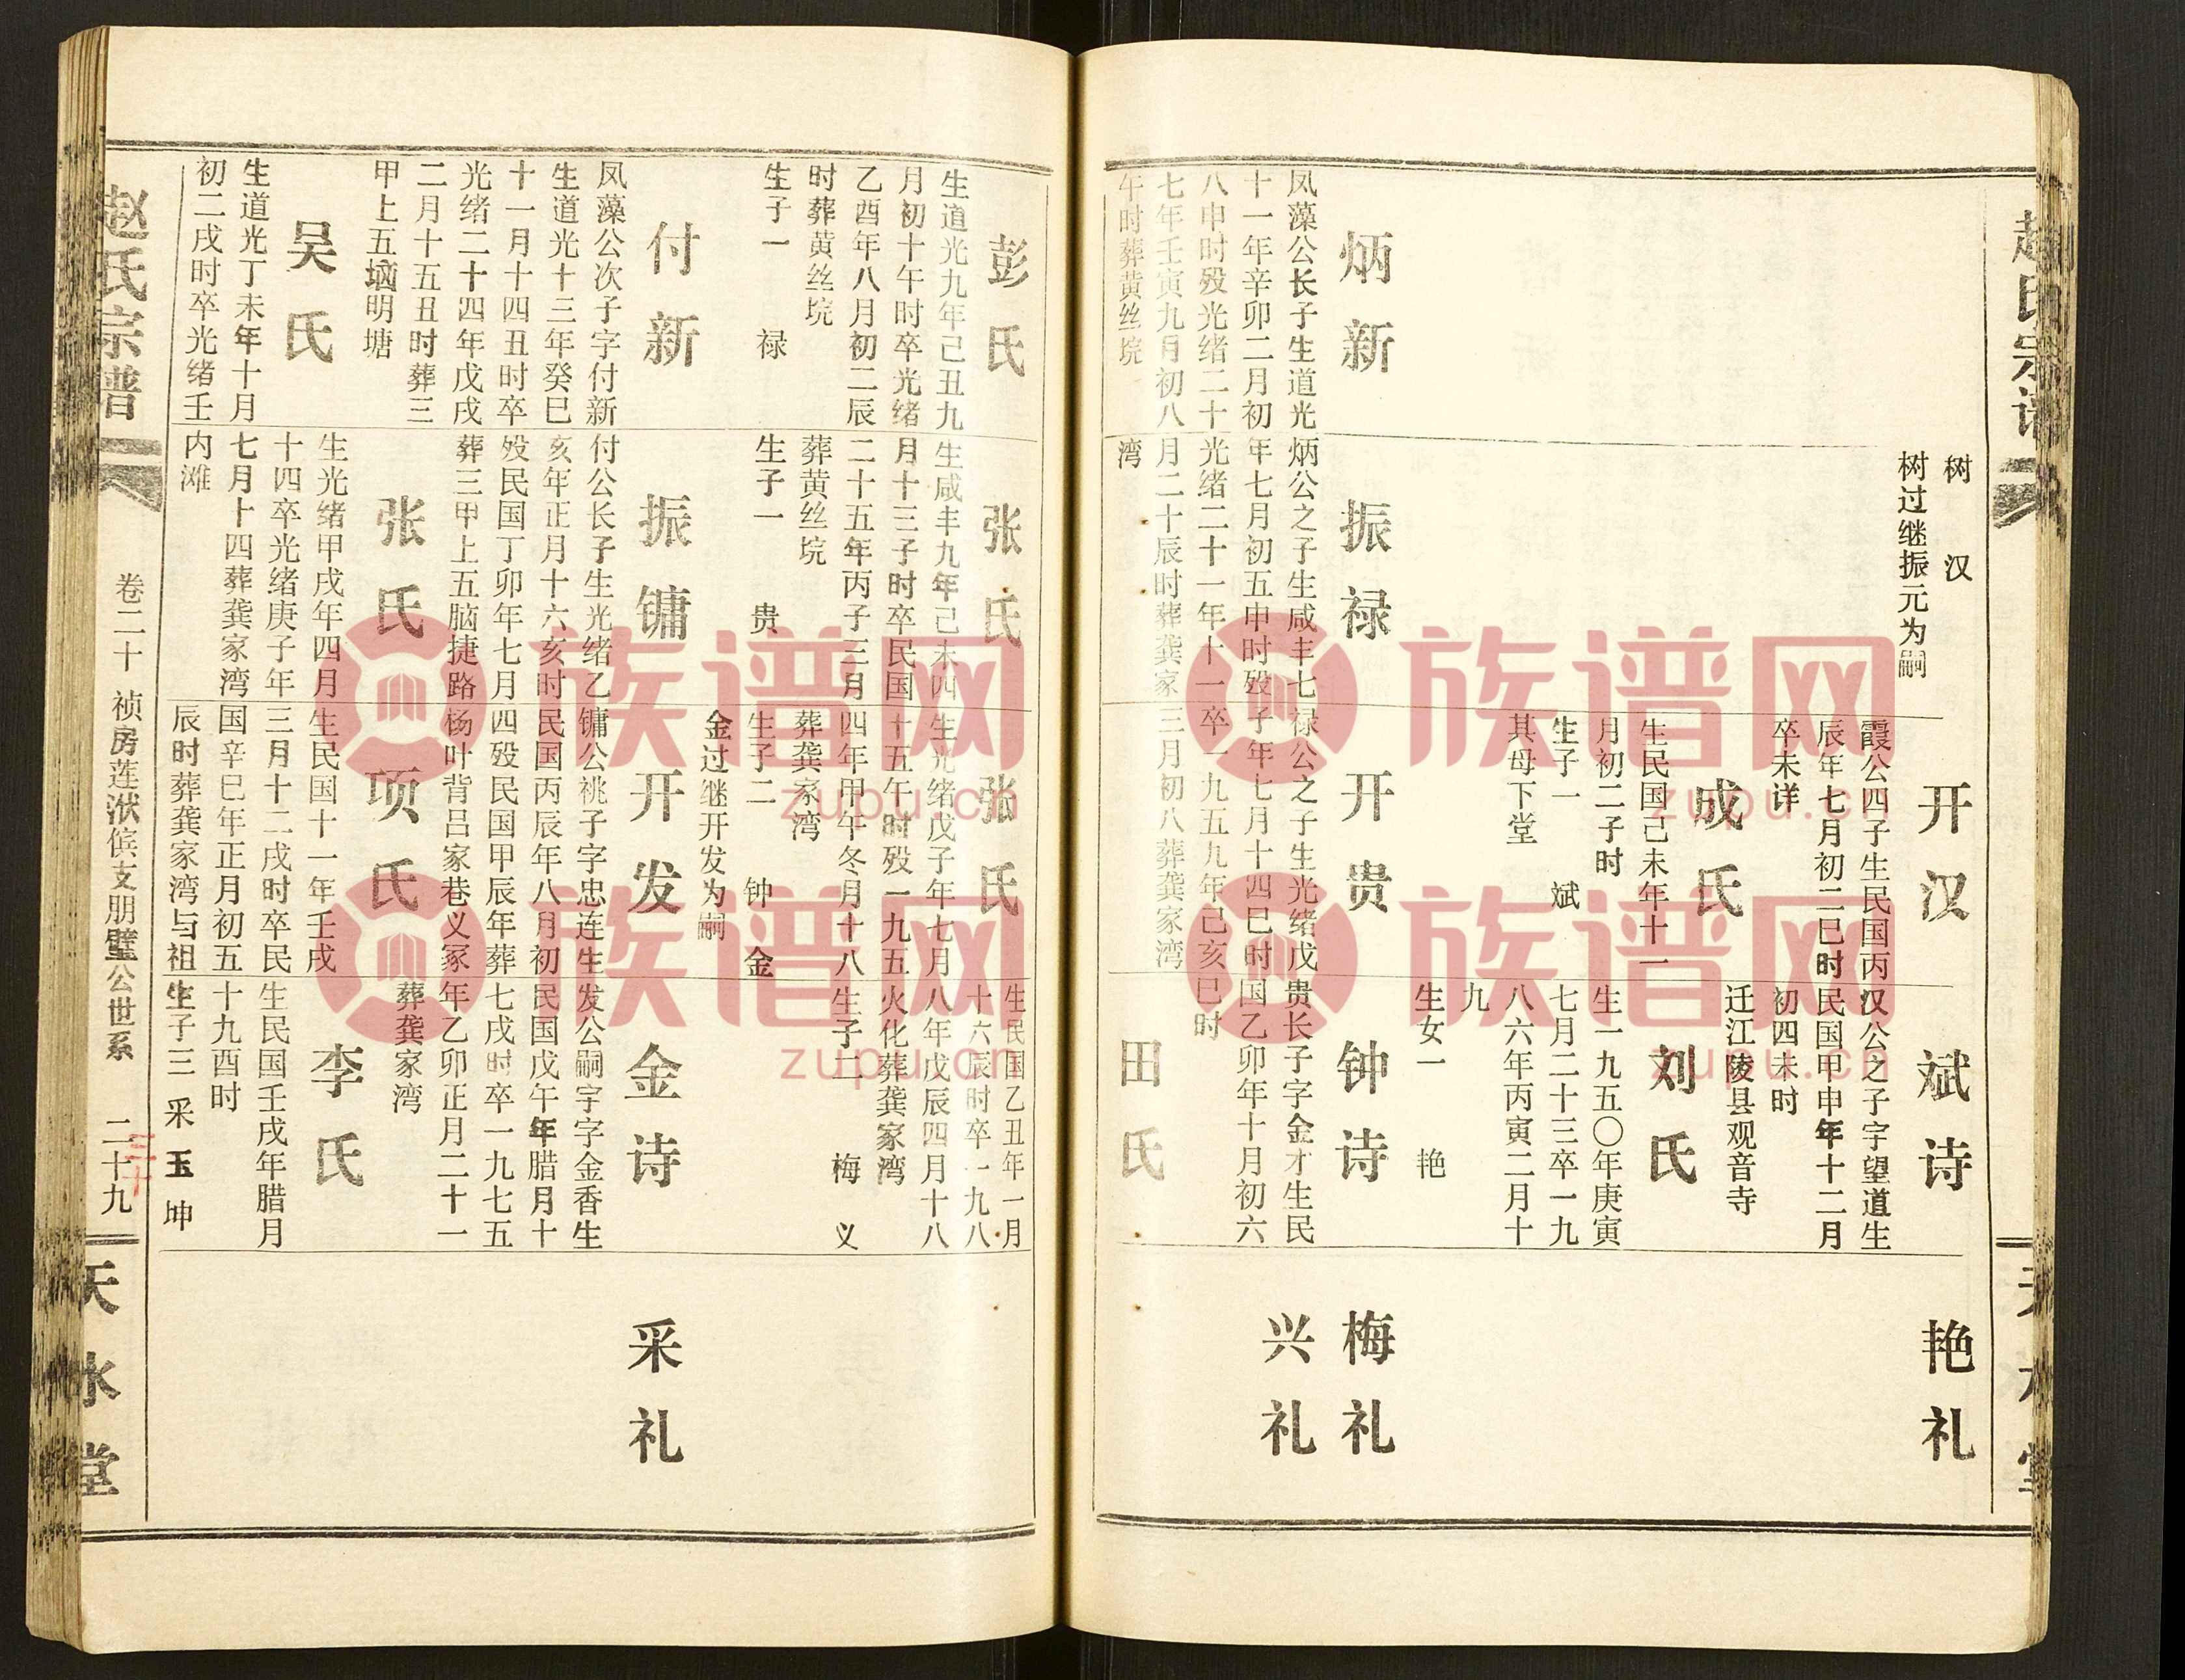 赵氏宗谱
天水堂
树 汉
树过继振元为嗣
炳新
凤藻公长子生道光
十一年辛卯二月初
八申时殁光绪二十
七年壬寅九月初八
午时葬黄丝垸
振禄
炳公之子生咸丰七
年七月初五申时殁
光绪二十一年十一
月二十辰时葬龚家
湾
开汉
霞公四子生民国丙
辰年七月初二巳时
卒未详
成氏
生民国己未年十一
月初二子时
生子一 斌
其母下堂
开贵
禄公之子生光绪戊
子年七月十四巳时
卒一九五九年己亥
三月初八葬龚家湾
斌诗
汉公之子字望道生
民国甲申年十二月
初四未时
迁江陵县观音寺
刘氏
生一九五〇年庚寅
七月二十三卒一九
八六年丙寅二月十
九
生女一 艳
钟诗
贵长子字金才生民
国乙卯年十月初六
巳时
田氏
艳礼
梅礼
兴礼
彭氏
生道光九年己丑九
月初十午时卒光绪
乙酉年八月初二辰
时葬黄丝垸
生子一 禄
付新
凤藻公次子字付新
生道光十三年癸巳
十一月十四丑时卒
光绪二十四年戊戌
二月十五丑时葬三
甲上五垴明塘
吴氏
生道光丁未年十月
初二戌时卒光绪壬
张氏
生咸丰九年己未四
月十三子时卒民国
二十五年丙子三月
葬黄丝垸
生子一 贵
振镛
付公长子生光绪乙
亥年正月十六亥时
殁民国丁卯年七月
葬三甲上五脑捷路
张氏
生光绪甲戌年四月
十四卒光绪庚子年
七月十四葬龚家湾
内滩
张氏
生光绪戊子年七月
十五午时殁一九五
四年甲午冬月十八
葬龚家湾
生子二 钟 金
金过继开发为嗣
开发
镛公祧子字忠连生
民国丙辰年八月初
四殁民国甲辰年葬
杨叶背吕家巷义冢
项氏
生民国十一年壬戌
三月十二戌时卒民
国辛巳年正月初五
辰时葬龚家湾与祖
生民国乙丑年一月
十六辰时卒一九八
八年戊辰四月十八
火化葬龚家湾
生子二 梅 义
金诗
发公嗣字字金香生
民国戊午年腊月十
七戌时卒一九七五
年乙卯正月二十一
葬龚家湾
李氏
生民国壬戌年腊月
十九酉时
生子三 采 玉 坤
采礼
赵氏宗谱
卷二十 祯房莲洑傧支朋璧公世系 二十九
三十
天水堂
族谱网
zupu.cn
族谱网
zupu.cn
族谱网
zupu.cn
族谱网
zupu.cn